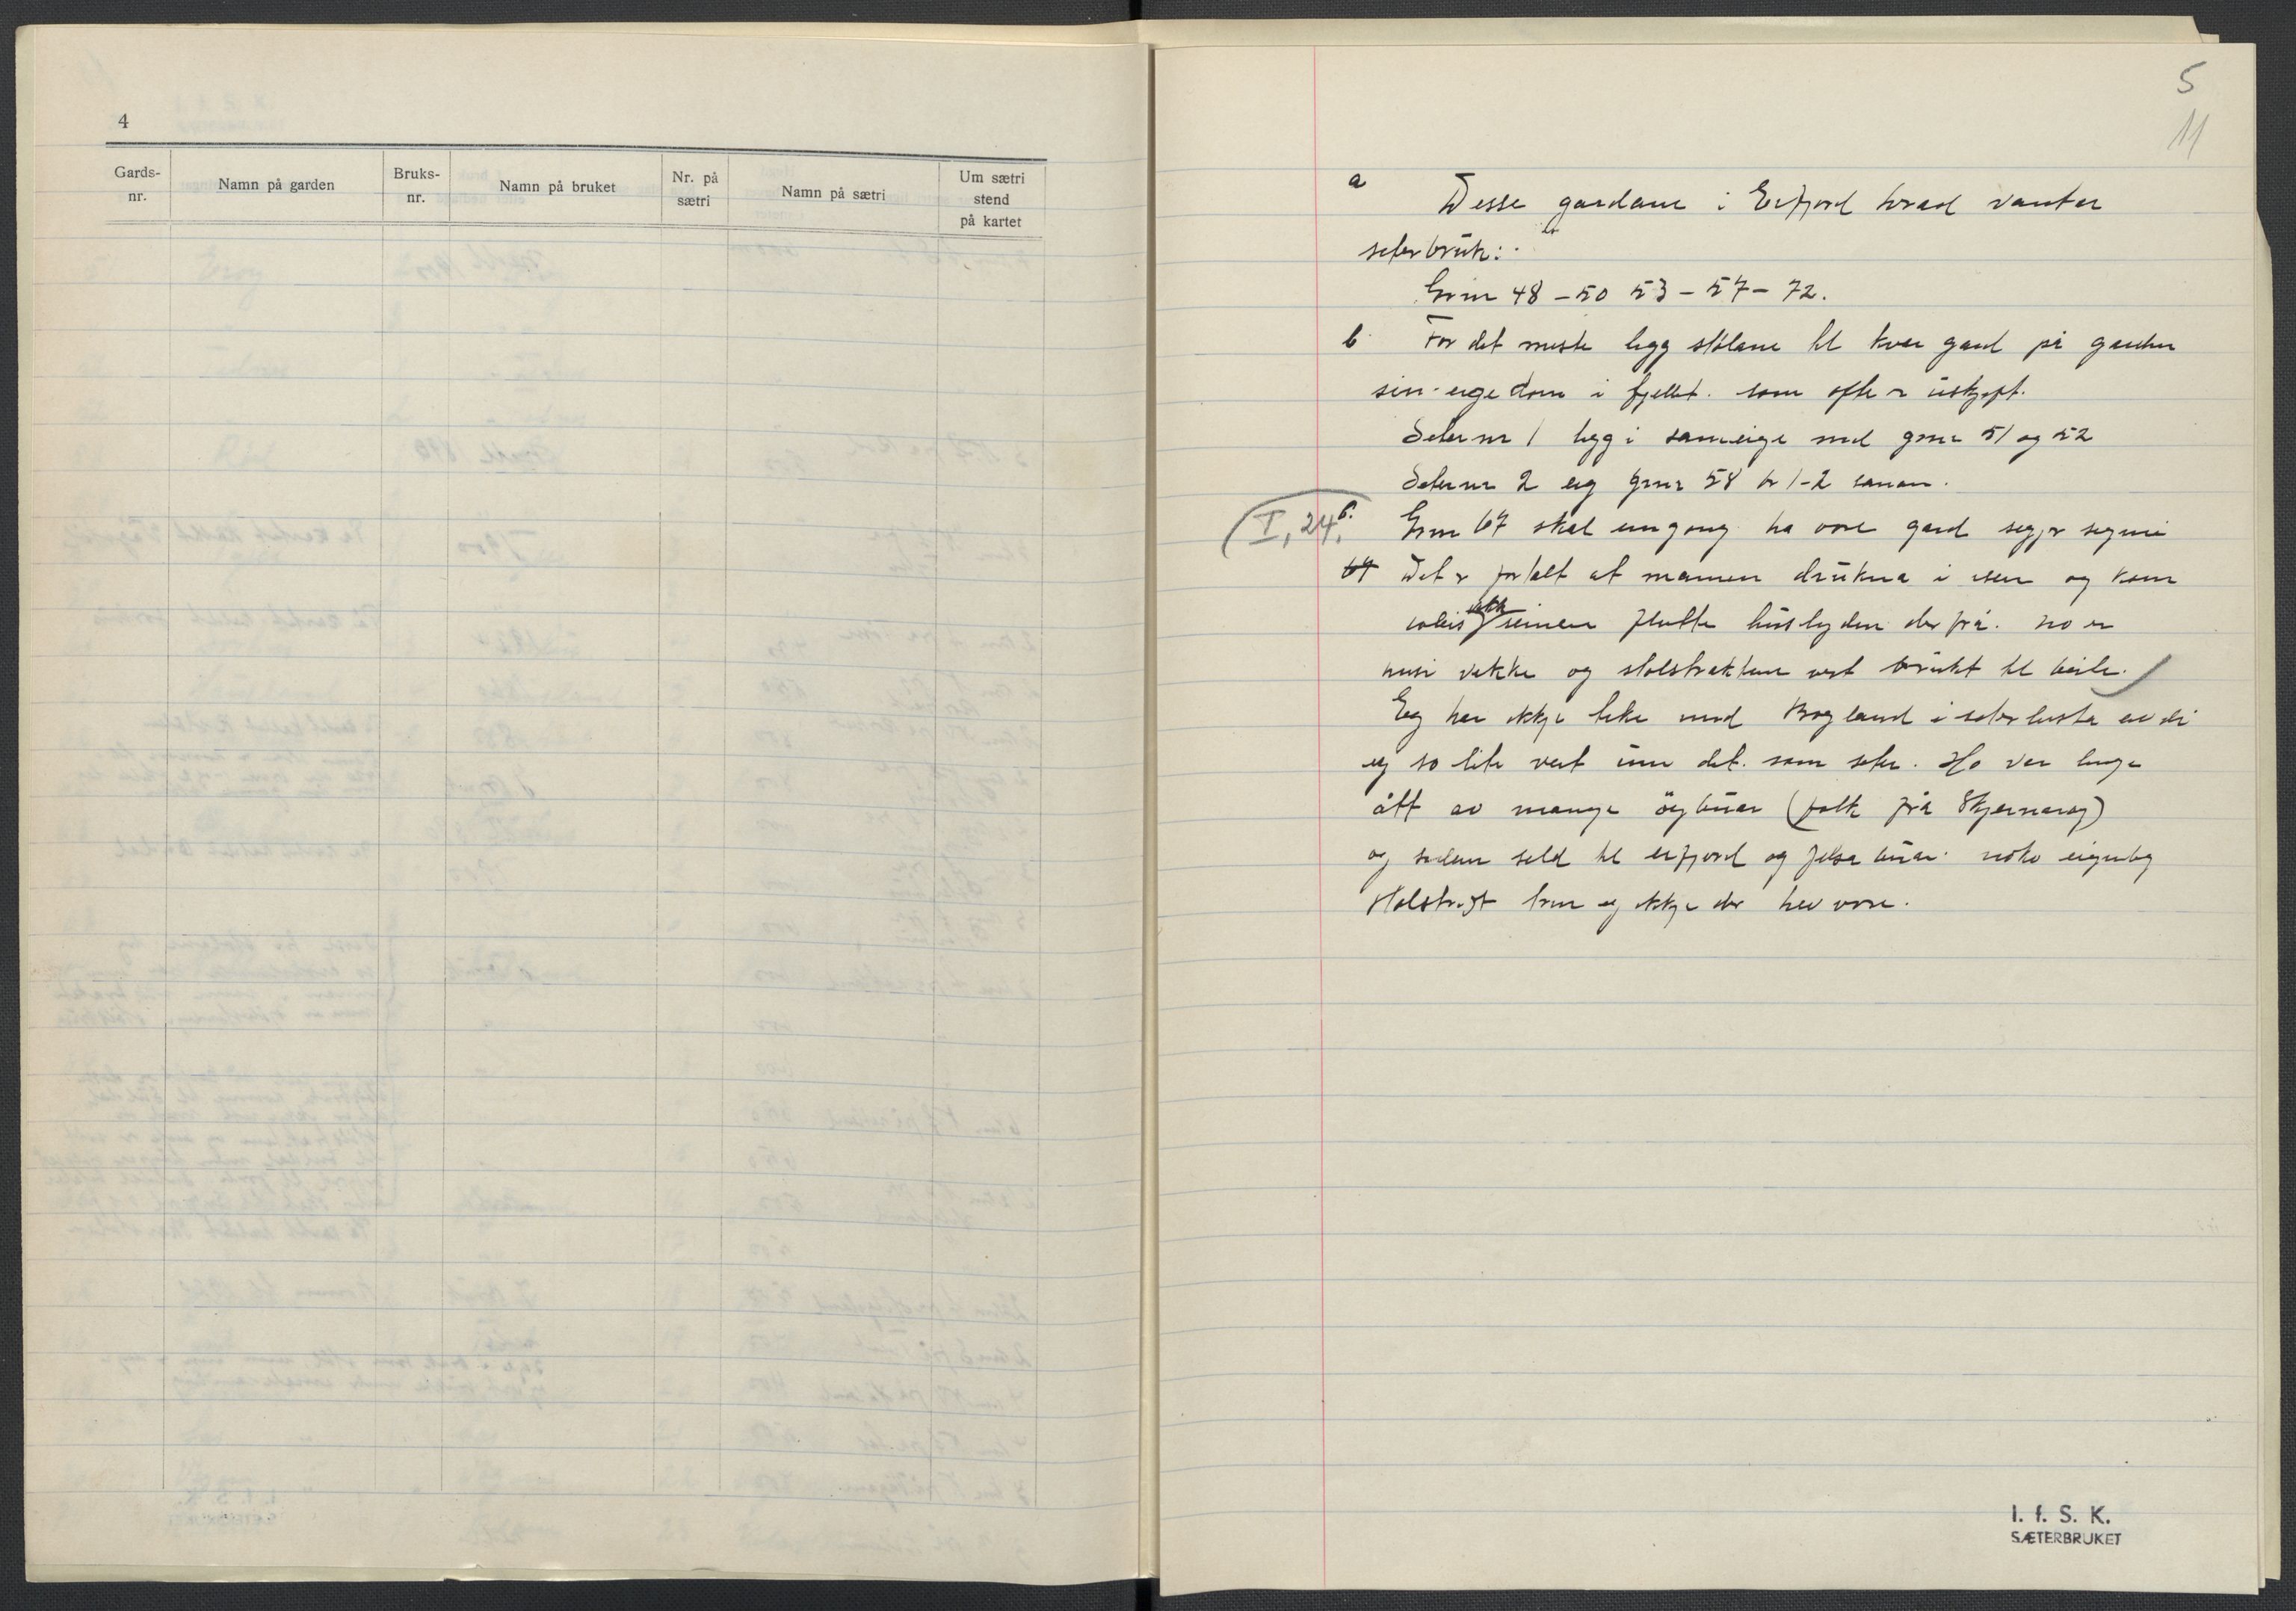 4
Gards-
nr.
Namn på garden
Bruks-
nr.
Namn på bruket
Nr. på
sætri
Namn på sætri
Um sætri
stend
på kartet
5
11
a Desse gardane i Erfjord herad vantar
seterbruk:
Grnr 48 – 50 53 – 57 – 72.
b For det meste ligg stølane til kvar gard på garden
sin eigedom i fjellet. som ofte er uskyft.
Seter nr 1 ligg i sameige med grnr 51 og 52
Seter nr 2 eig grnr 58 br 1-2 saman.
(I, 24. 6. Grnr 67 skal eingong ha vore gard segjer segni
Det er fortalt at mannen drukna i elven og kom
vekk seinare flutte huslyden derfrå. no er
husi vekke og stølstraktene vert brukt til beite.
Eg har ikkje teke med Bogland i seterlista av di
eg so lite veit um det. som seter. Ho var lenge
ått av mange øybuar (folk frå Skjernarøy)
og sidan seld til erfjord og jelsa buar. noko eigenleg
stølsdrift trur eg ikkje der hev vore.
I. f. S. K.
SÆTERBRUKET